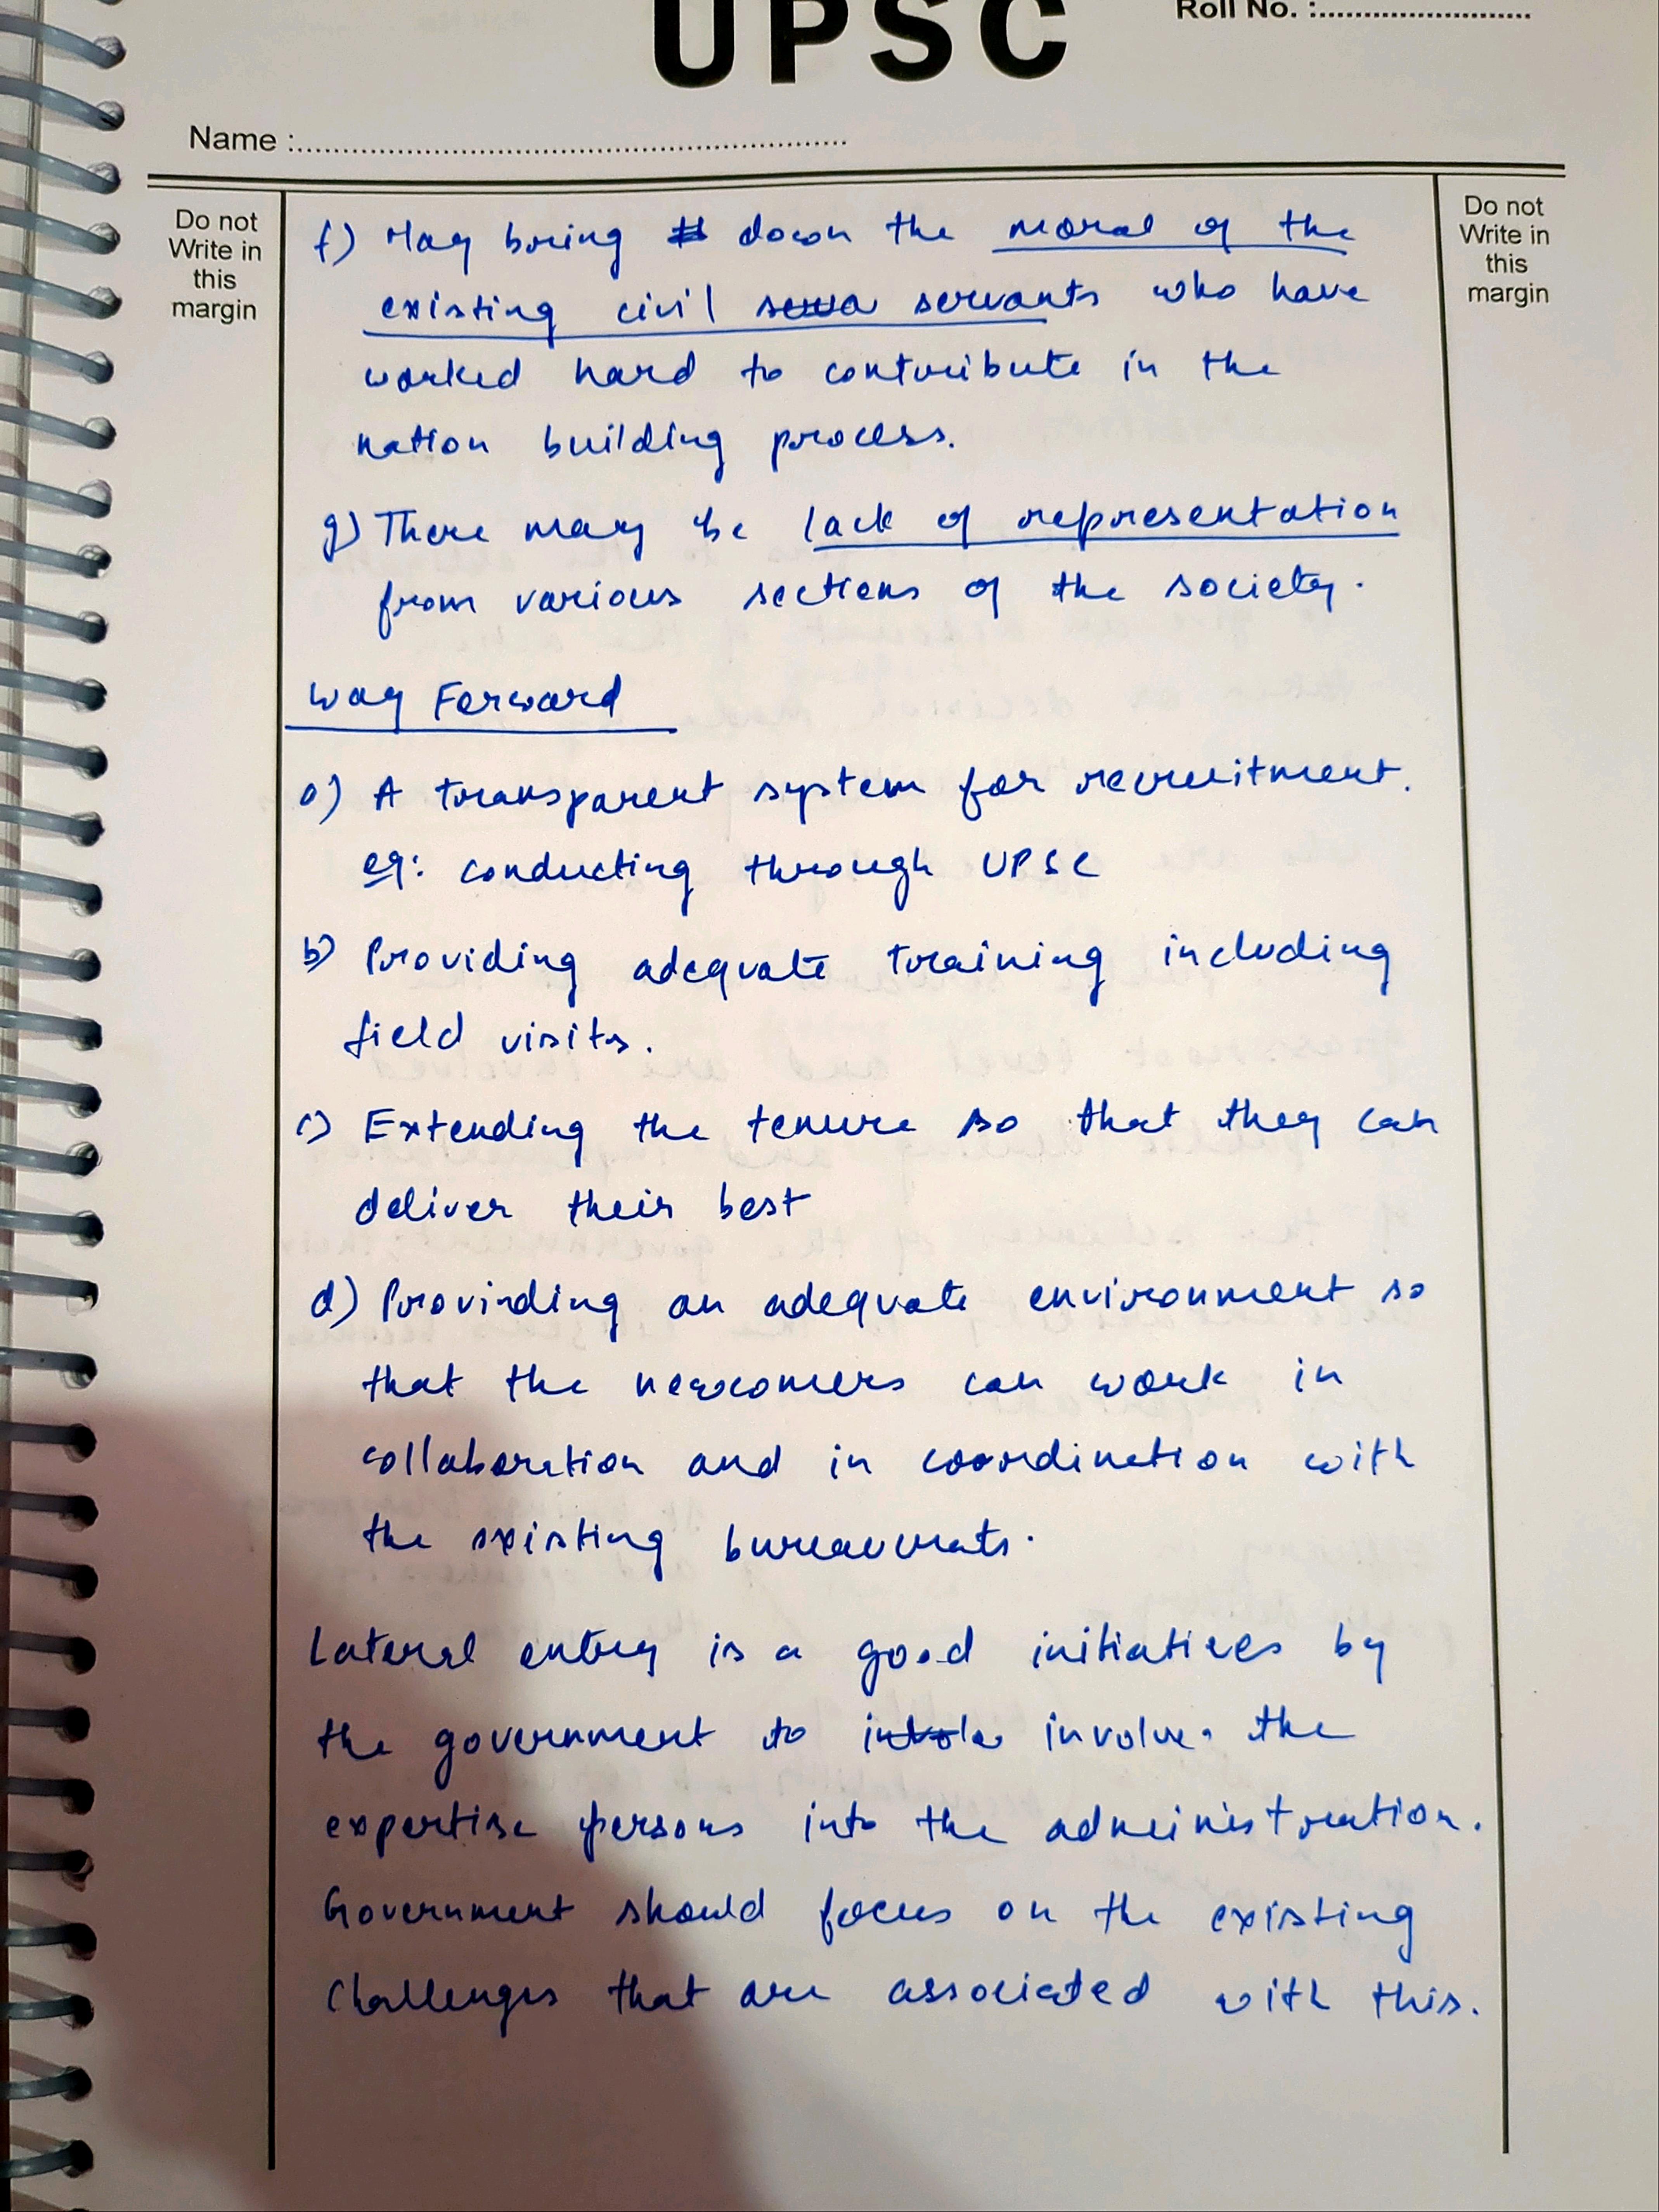 UPSC
Roll No. :........................
Name :................................................................
Do not
Write in
this
margin
Do not
Write in
this
margin
f) May bring down the moral of the
existing civil servants who have
worked hard to contribute in the
nation building process.
g) There may be lack of representation
from various sections of the society.
Way Forward
a) A transparent system for recruitment.
eg: conducting through UPSC
b) Providing adequate training including
field visits.
c) Extending the tenure so that they can
deliver their best
d) Provinding an adequate environment so
that the newcomers can work in
collaboration and in coordination with
the existing bureaucrats.
Lateral entry is a good initiatives by
the government to involve the
expertise persons into the administration.
Government should focus on the existing
challenges that are associated with this.